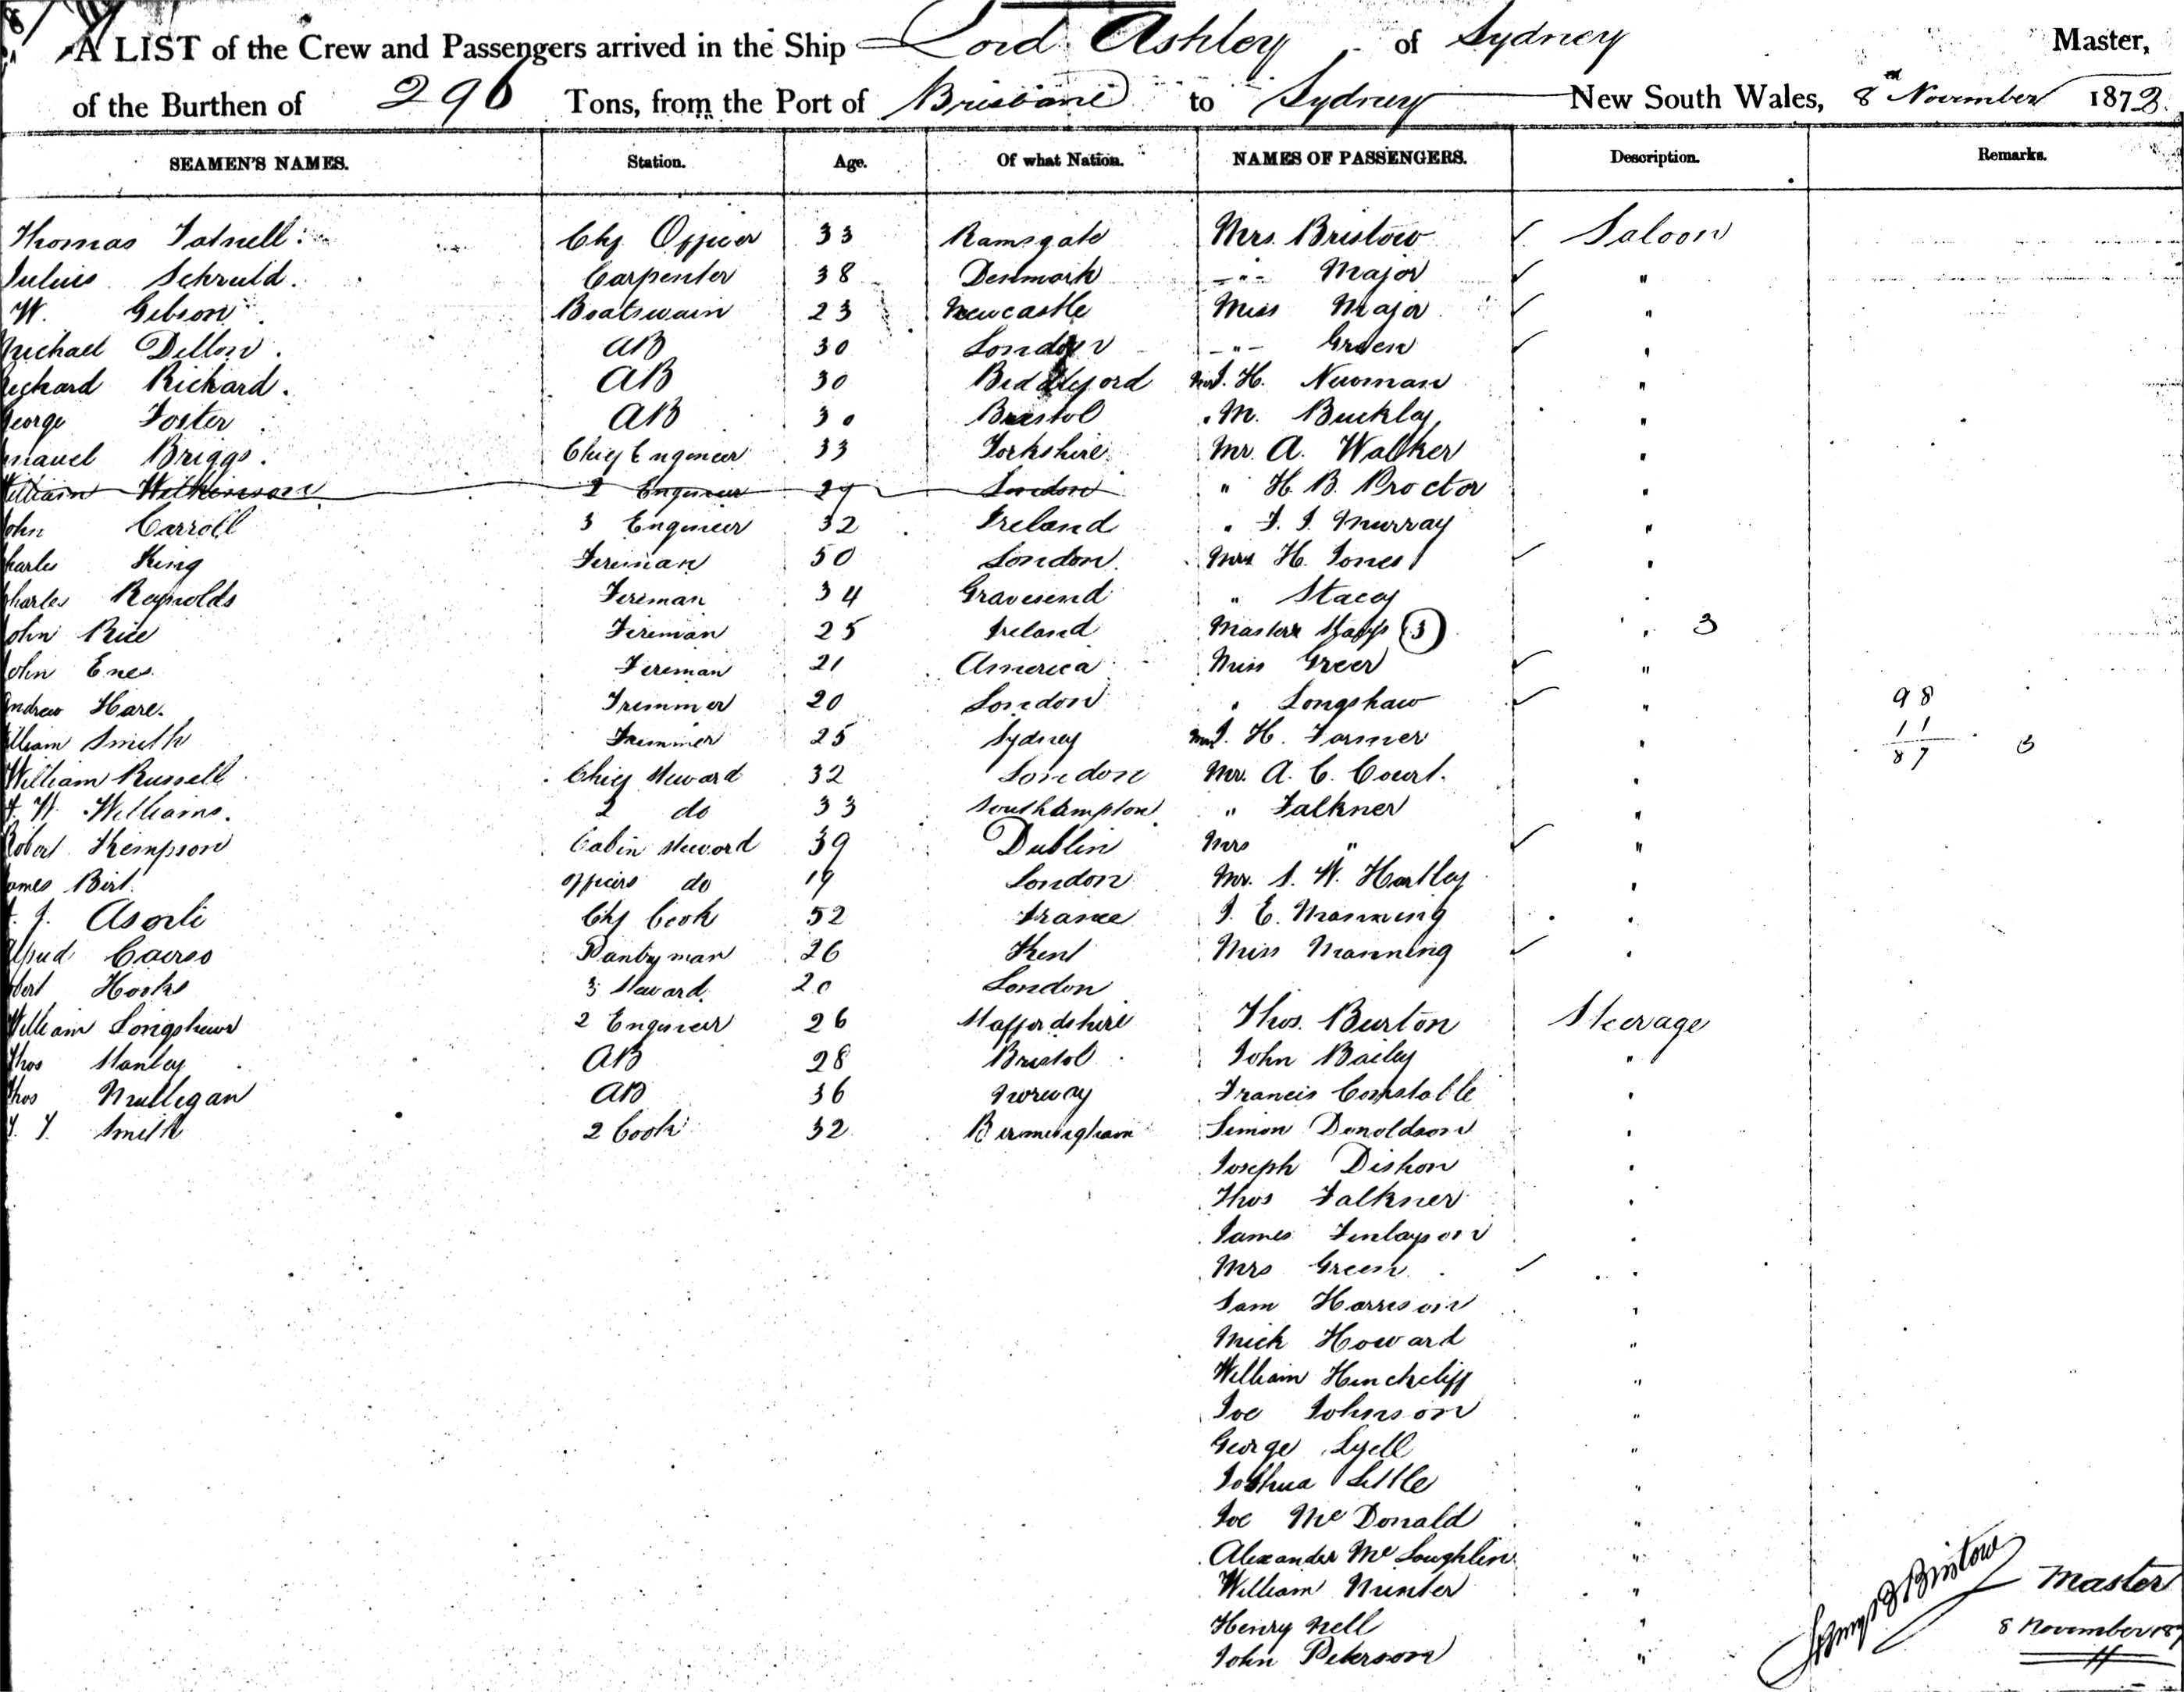 A LIST of the Crew and Passengers arrived in the Ship Lord Ashley of Sydney Master,
of the Burthen of 296 Tons, from the Port of Brisbane to Sydney New South Wales, 8th November 1873.
SEAMEN'S NAMES. Station. Age. Of what Nation. NAMES OF PASSENGERS. Description. Remarks.
Thomas Tatnell. Chf Officer 33 Ramsgate Mrs. Bristow ✓ Saloon
Julius Schruld. Carpenter 38 Denmark -"- Major ✓ "
W. Gibson Boatswain 23 Newcastle Miss Major ✓ "
Michael Dillon. AB 30 London -"- Green ✓ "
Richard Rickard. AB 30 Biddleford H. Newman "
George Foster AB 30 Bristol M. Buckley "
Emanuel Briggs. Chief Engineer 33 Yorkshire Mr. A. Walker "
William Wilkinson 2 Engineer 29 London " H. B. Proctor "
John Carroll 3 Engineer 32 Ireland " J. J. Murray "
Charles King Fireman 50 London. Mrs H. Jones ✓ "
Charles Reynolds Fireman 34 Gravesend " Stacey "
John Rice Fireman 25 Ireland Masters (3) " 3
John Enes. Fireman 21 America Miss Greer ✓ "
Andrew Hare. Trimmer 20 London " Longshaw ✓ " 98
William Smith Trimmer 25 Sydney J. H. Farmer " 11
87
William Russell Chief Steward 32 London Mr. A. C. Court. "
W. Williams. 2 do 33 Southampton. " Falkner "
Robert Kempson Cabin Steward 39 Dublin Mrs " ✓ "
James Birt. Officers do 19 London Mr. S. W. Hartley "
J. Asorli Chf Cook 52 France J. E. Manning "
Alfred Cairss Pantryman 26 Kent Miss Manning ✓ "
Hooks 3 Steward. 20 London
William Longshaw 2 Engineer 26 Staffordshire Thos. Burton Steerage
Thos Stanley AB 28 Bristol John Bailey "
Thos Mullegan AB 36 Norway Francis Constable "
Smith 2 Cook 32 Birmingham Simon Donoldson "
Joseph Dishon "
Thos Falkner "
James Finlayson "
Mrs Green ✓ "
Sam Harrison "
Mick Howard "
William Hinchcliff "
Joe Johnson "
George Lyell "
Joshua Little "
Joe McDonald "
Alexander McLoughlin "
William Nunter "
Henry Nell "
John Peterson "
Bristow Master
8 November 187